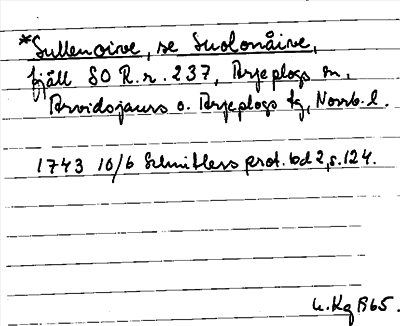 *Sullenoive, se Suolonåive,
fjäll SO R.r. 237, Arjeplogs sn,
Arvidsjaurs o. Arjeplogs tg, Norrb. l.
1743 10/6 Schnitlers prot. bd 2, s. 124.
U. Kg 1965.